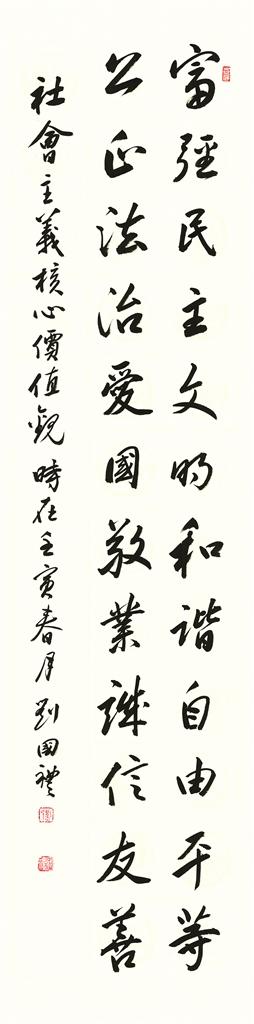 富強民主文明和谐自由平等
公正法治愛國敬業誠信友善
社會主義核心價值觀 時在壬寅春月 刘國禮